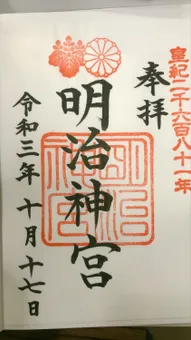 皇紀二千六百八十一年
奉拝
明治神宮
明治神宮
令和三年 十月十七日